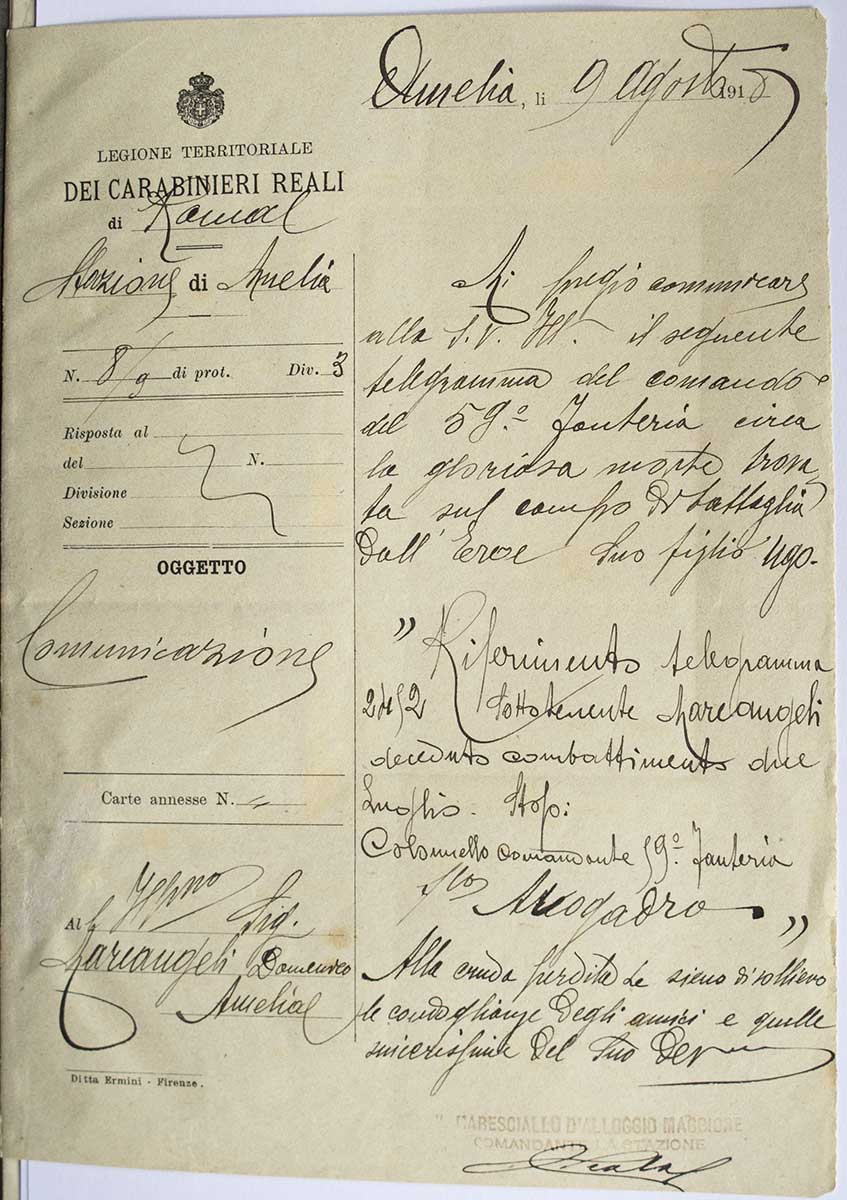 Amelia, li 9 Agosto 1918
LEGIONE TERRITORIALE
DEI CARABINIERI REALI
di Roma
Stazione di Amelia
N. 8/9 di prot. Div. 3
Risposta al
del N.
Divisione
Sezione
OGGETTO
Comunicazione
Carte annesse N.
Al Ill.mo Sig.
Mareangeli Domenico
Amelia
Ditta Ermini - Firenze.
Mi pregio comunicare
alla S.V. Ill. il seguente
telegramma del comando
del 59.o Fanteria circa
la gloriosa morte trova
ta sul campo di battaglia
dall'Eroe Suo figlio Ugo.
" Riferimento telegramma
Sottotenente Mareangeli
deceduto combattimento due
Luglio. Stop:
Colonnello comandante 59.o Fanteria
f.to Avogadro "
Alla cruda perdita Le sieno di sollievo
le condoglianze degli amici e quelle
sincerissime del Suo Dev
MARESCIALLO D'ALLOGGIO MAGGIORE
COMANDANTE LA STAZIONE